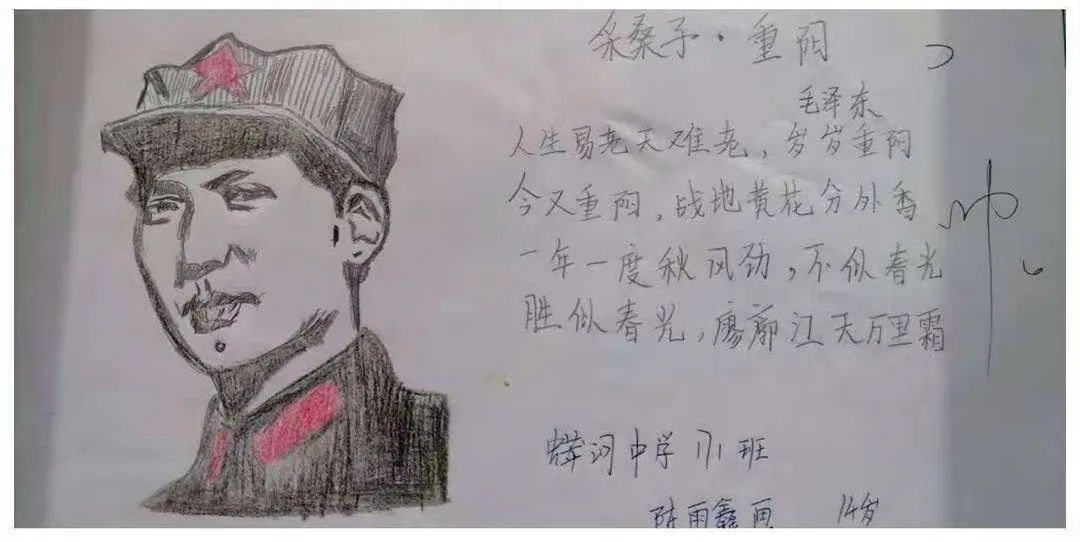 采桑子·重阳
毛泽东
人生易老天难老，岁岁重阳
今又重阳，战地黄花分外香
一年一度秋风劲，不似春光
胜似春光，廖廓江天万里霜
中学 171班
雨鑫画 14岁